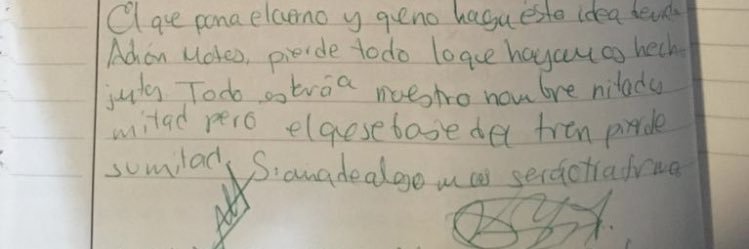 El que pona el cuerno y que no haga esto idea
Adrián Mates, pierde todo lo que hayamos hech
juntos Todo estria nuestro nombre mitad y
mitad pero el que se base del tren pierde
su mitad, Si anade algo mas será otra firma